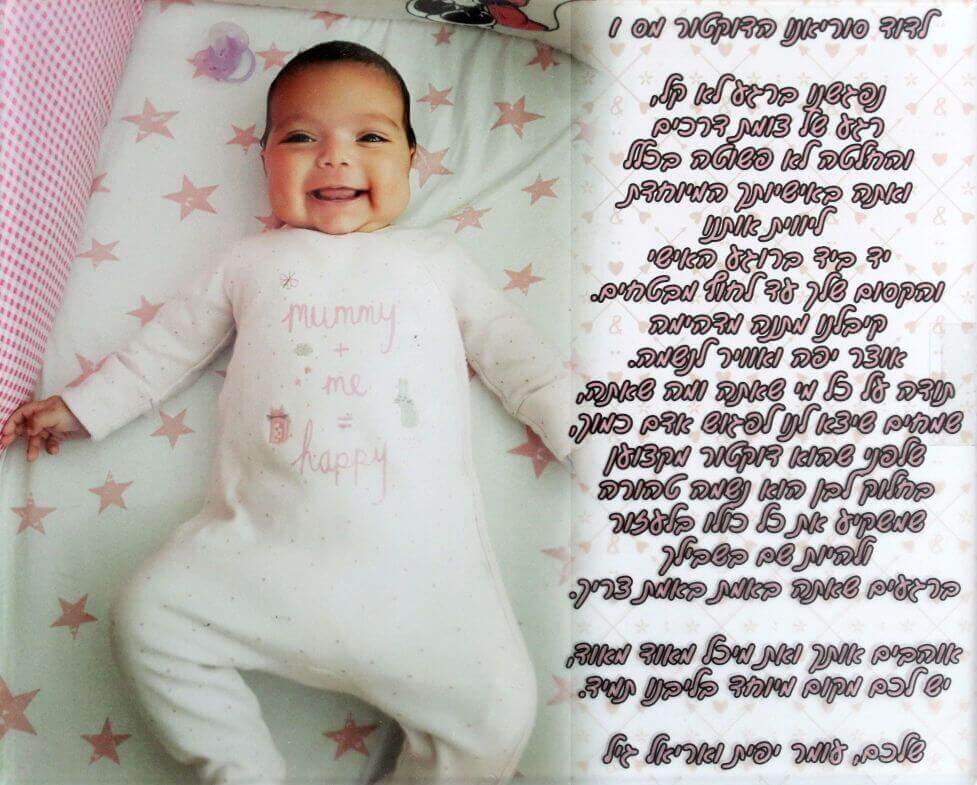 לדוד סוריאנו הדוקטור מס 1
נפגשנו ברגע לא קל,
רגע של צומת דרכים
והחלטה לא פשוטה בכלל
ואתה באישיותך המיוחדת
ליווית אותנו
יד ביד ברוגע האישי
והקסום שלך עד לחוף מבטחים.
קיבלנו מתנה מדהימה
אוצר יפה ואוויר לנשמה.
תודה על כל מי שאתה ומה שאתה,
שמחים שיצא לנו לפגוש אדם כמוך,
שלפני שהוא דוקטור מקצוען
בחלוק לבן הוא נשמה טהורה
שמשקיע את כל כולו בלעזור
ולהיות שם בשבילך
ברגעים שאתה באמת באמת צריך.
אוהבים אותך ואת מיכל מאוד מאוד,
יש לכם מקום מיוחד בליבנו תמיד.
שלכם, עומר יפית ואוריאל גיל
mummy
+
me
=
happy